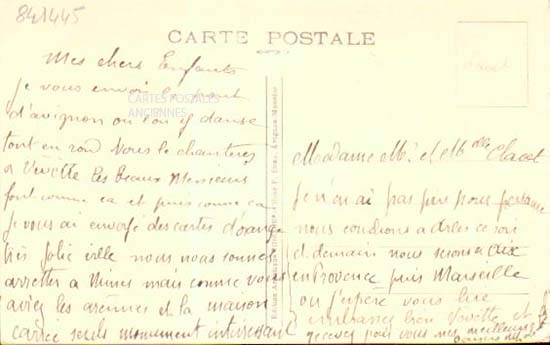 841445
CARTE POSTALE
Mes chers Enfants
je vous envoi le pont
d'avignon ou l'on y danse
tout en rond vous le chanterez
a Vivette les beaux Messieurs
font comme ca et puis comme ca
je vous ai envoyé des cartes d'orange
très jolie ville nous nous sommes
arretter a Nimes mais comme vous
aviez les arennes et la maison
carrée seuls monument interessant
CARTES POSTALES
ANCIENNES
Madame M. et Melle
je n'en ai pas pris pour
nous coucherons a arles ce soir
et demain nous serons a aix
en Provence puis Marseille
ou j'espere vous lire
embrassez bien Vivette et
recevez pour vous mes meilleurs